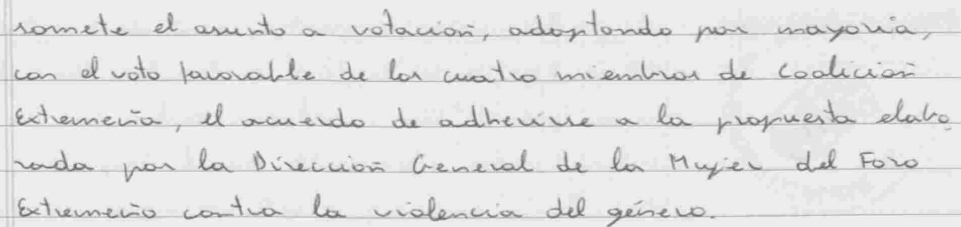 somete el asunto a votación, adoptando por mayoría,
con el voto favorable de los cuatro miembros de Coalición
Extremeña, el acuerdo de adherirse a la propuesta elabo
rada por la Dirección General de la Mujer del Foro
Extremeño contra la violencia del género.